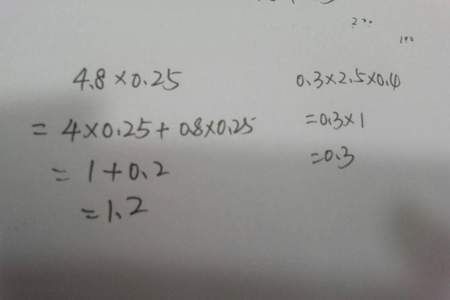 4.8×0.25
=4×0.25+0.8×0.25
=1+0.2
=1.2
0.3×2.5×0.4
=0.3×1
=0.3